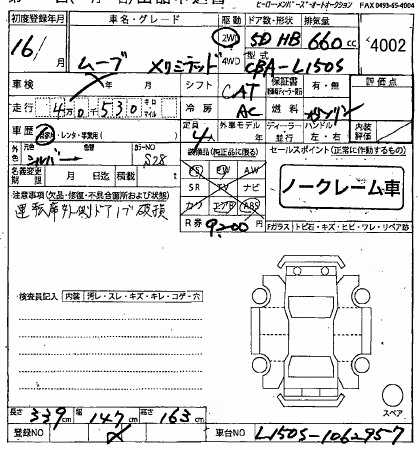 ヒーローメンバーズ・オートオークション FAX 0493-65-4004
初度登録年月 車名・グレード 駆動 ドア数・形状 排気量
16/月 ムーブ メリミテッド 2WD 4WD 5D HB 660cc 4002
型式 CBA-L150S
車検 年 月 シフト CAT 保証書 有・無 評価点
走行 4万0千530 キロ マイル 冷房 AC 燃料 ガソリン
車歴 自家用・レンタ・事業用( ) 定員 4人 外車モデル 年 ディーラー 並行 ハンドル 左・右 内装評価
外色 元色 シルバー 色替 カラーNO S28
装備品(純正品に限る) セールスポイント(正常に作動するもの)
名義変更期限 月 日迄 積載 t
PS PW AW
SR TV ナビ
カワ エアB ABS
ノークレーム車
注意事項(欠品・修復・不具合箇所および状態)
運転席外側ドアノブ破損
R券 9200
Fガラス トビ石・キズ・ヒビ・ワレ・リペア跡
検査員記入 内装 汚レ・スレ・キズ・キレ・コゲ・穴
スペア
長さ 339cm 幅 147cm 高さ 163cm
登録NO 車台NO L150S-1062957